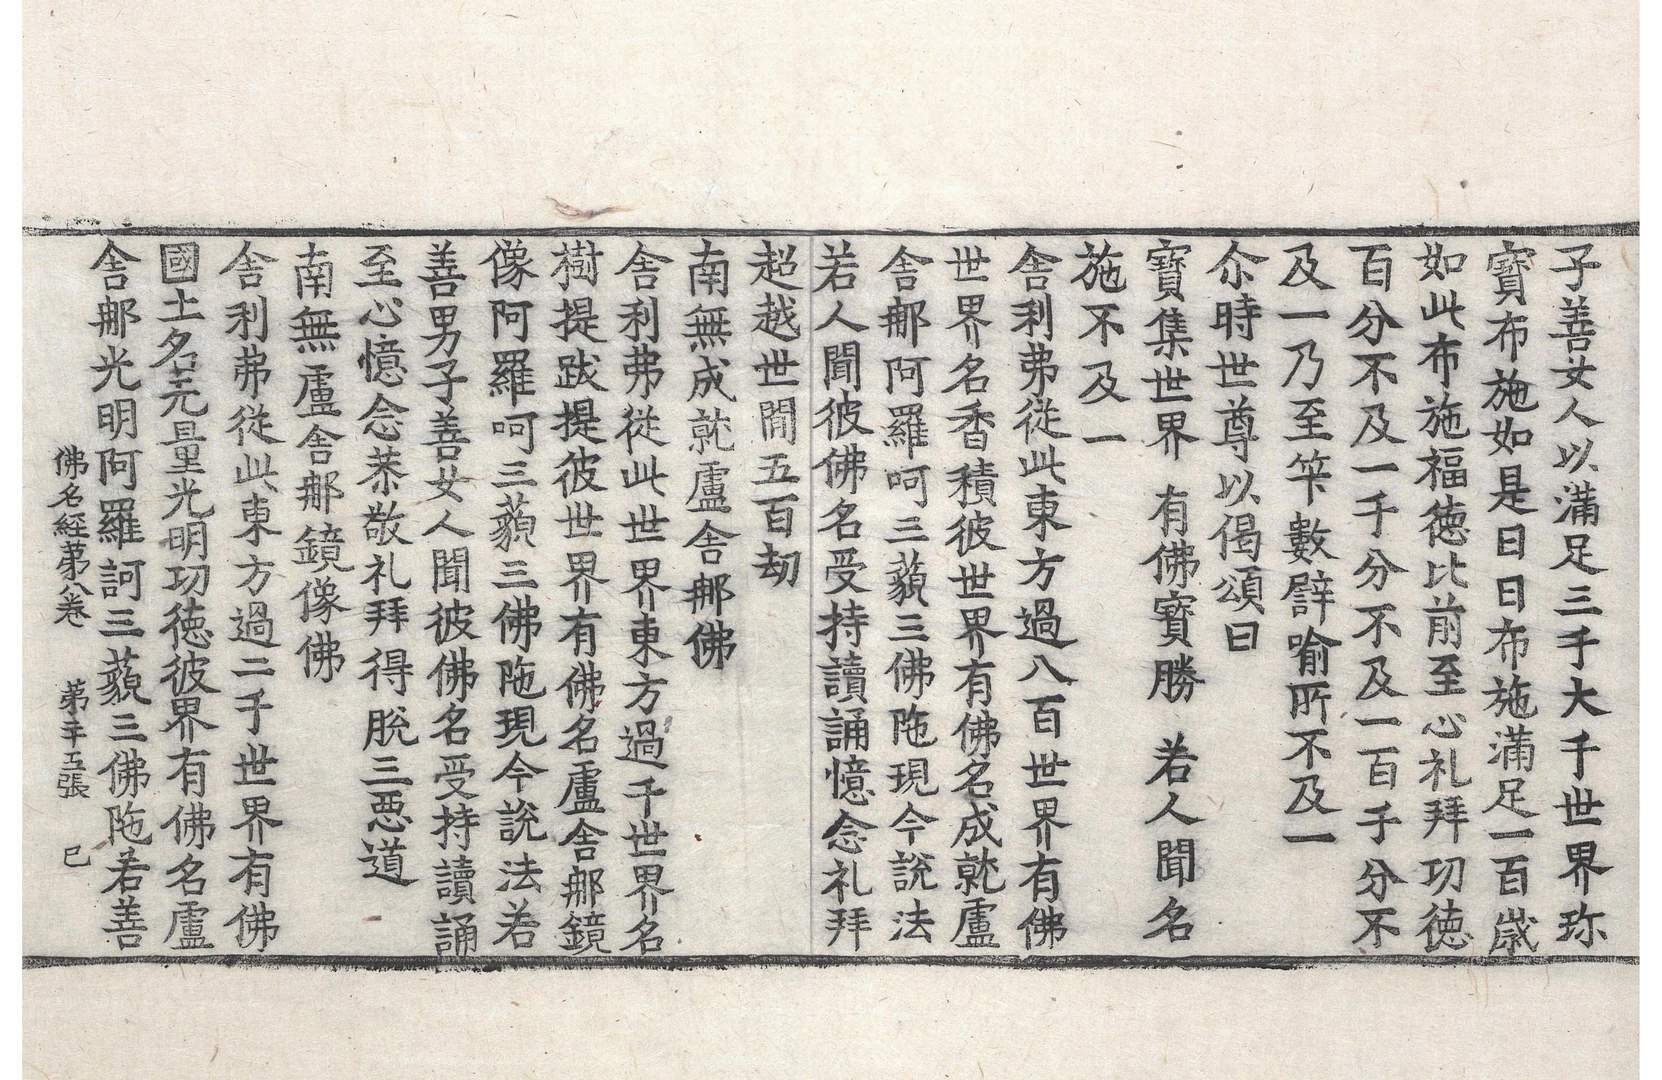 子善女人以滿足三千大千世界珎
寳布施如是日日布施滿足一百歳
如此布施福徳比前至心礼拜功徳
百分不及一千分不及一百千分不
及一乃至筭數譬喻所不及一
尒時世尊以偈頌曰
寳集世界 有佛寳勝 若人聞名
施不及一
舎利弗從此東方過八百世界有佛
世界名香積彼世界有佛名成就盧
舎那阿羅呵三藐三佛陁現今說法
若人聞彼佛名受持讀誦憶念礼拜
超越世閒五百劫
南無成就盧舎那佛
舎利弗從此世界東方過千世界名
樹提跋提彼世界有佛名盧舎那鏡
像阿羅呵三藐三佛陁現今說法若
善男子善女人聞彼佛名受持讀誦
至心憶念恭敬礼拜得脫三惡道
南無盧舎那鏡像佛
舎利弗從此東方過二千世界有佛
國土名无量光明功徳彼界有佛名盧
舎那光明阿羅訶三藐三佛陁若善
佛名經第八卷 第十五張 已